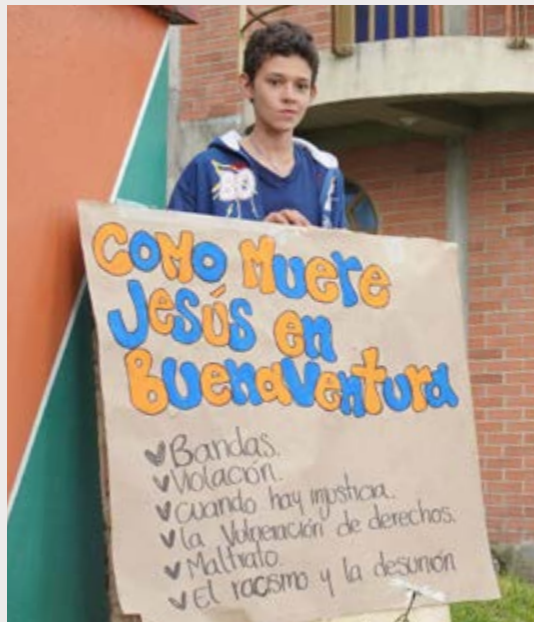 Como Muere
Jesús en
Buenaventura
Bandas.
Violación.
cuando hay injusticia.
la Vulneración de derechos.
Maltrato.
El racismo y la desunión